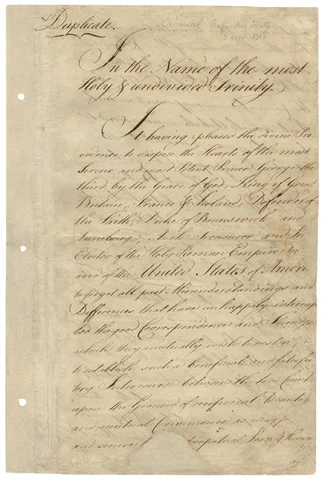 Duplicate.
In the Name of the most
Holy & undivided Trinity.
It having pleased the divine Pro
vidence to dispose the Hearts of the most
Serene and most Potent Prince George the
third, by the Grace of God, King of Great
Britain, France & Ireland, Defender of
the Faith, Duke of Brunswick and
Lunebourg, Arch Treasurer, and
Elector of the Holy Roman Empire &c
and of the United States of Amer
to forget all past Misunderstandings and
Differences that have unhappily interrup
ted the good Correspondence and Friendship
which they mutually wish to restore;
to establish such a beneficial and satisfac
tory Intercourse between the two Countries
upon the Ground of reciprocal Advantages
and mutual Convenience as may
and secure Perpetual Peace &